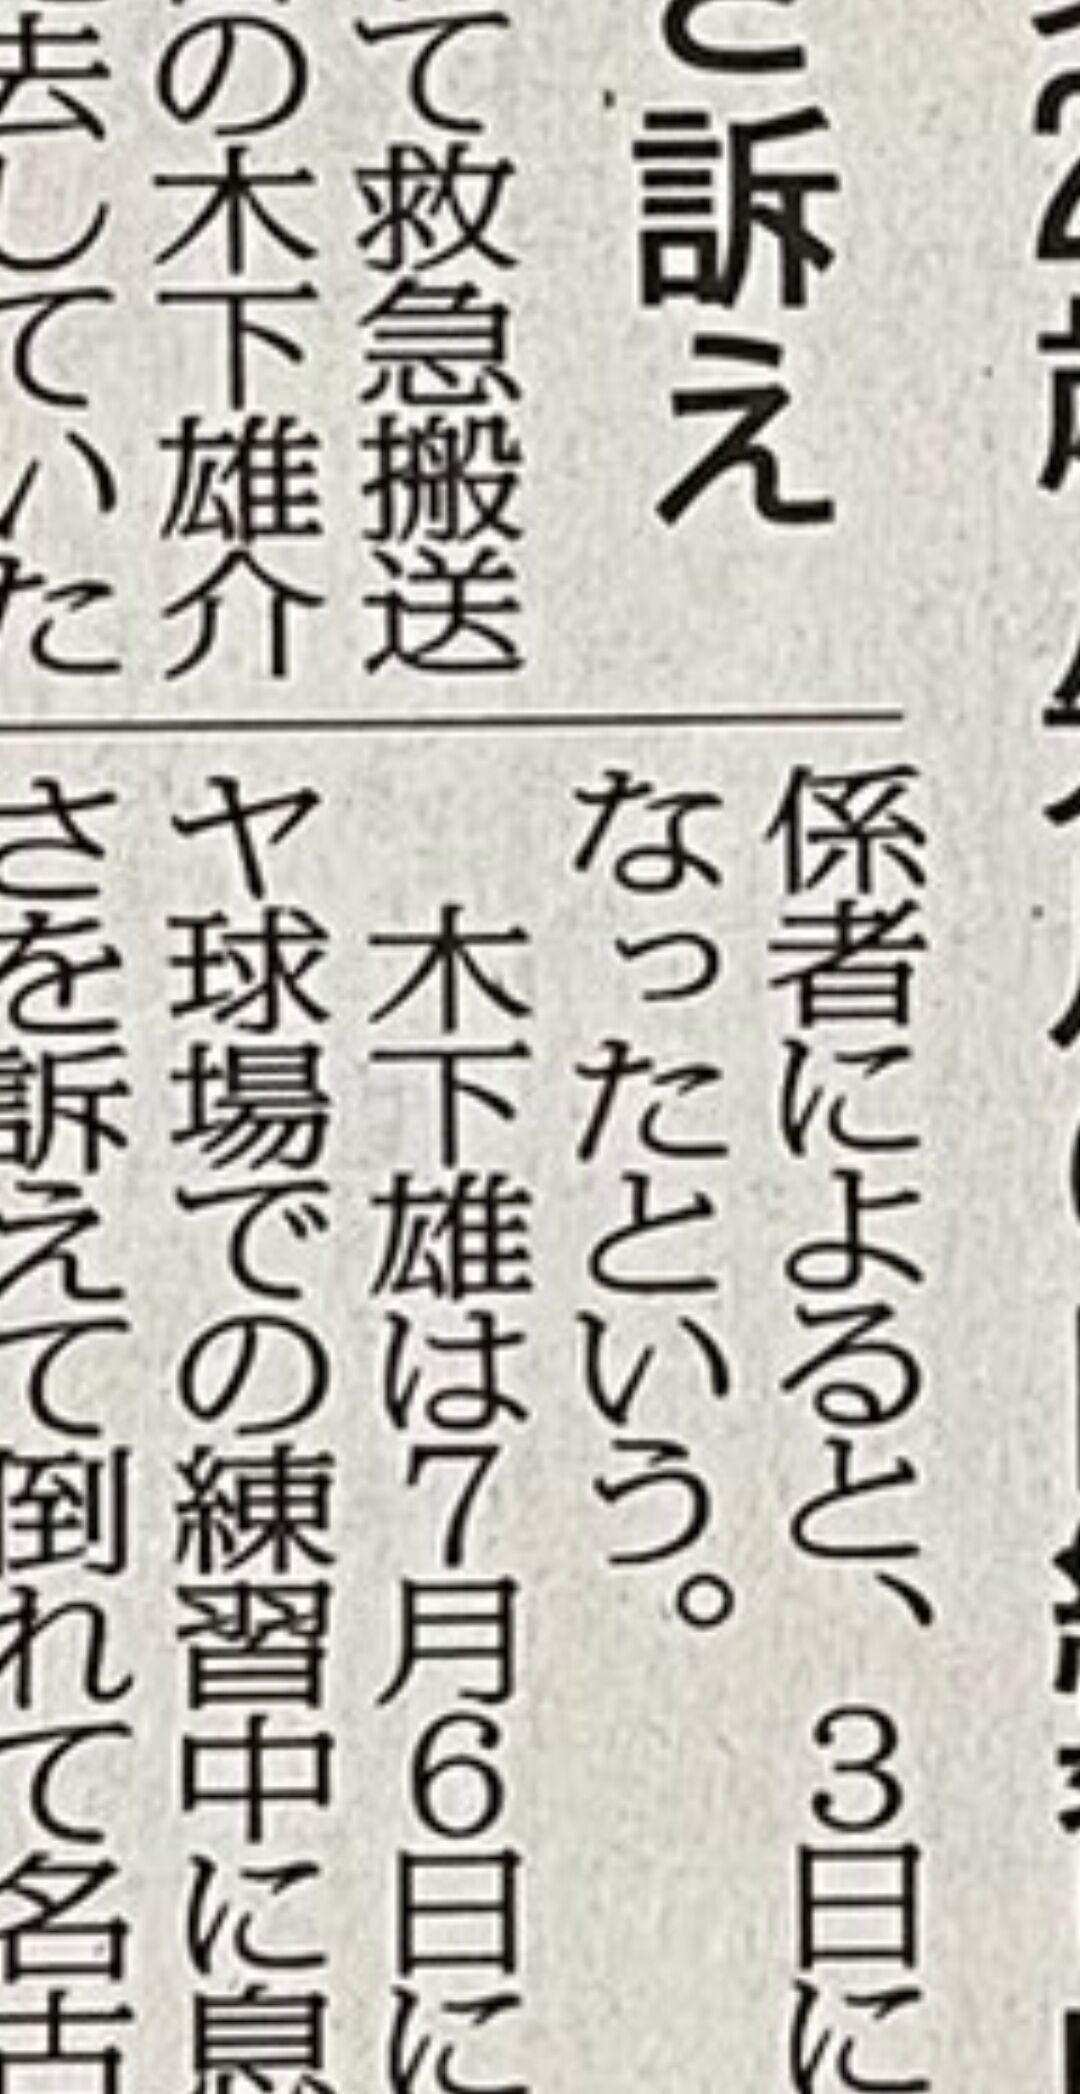 2歳
と訴え
て救急搬送
の木下雄介
去していた
係者によると、3日に
なったという。
木下雄は7月6日に
ヤ球場での練習中に息
さを訴えて倒れて名古